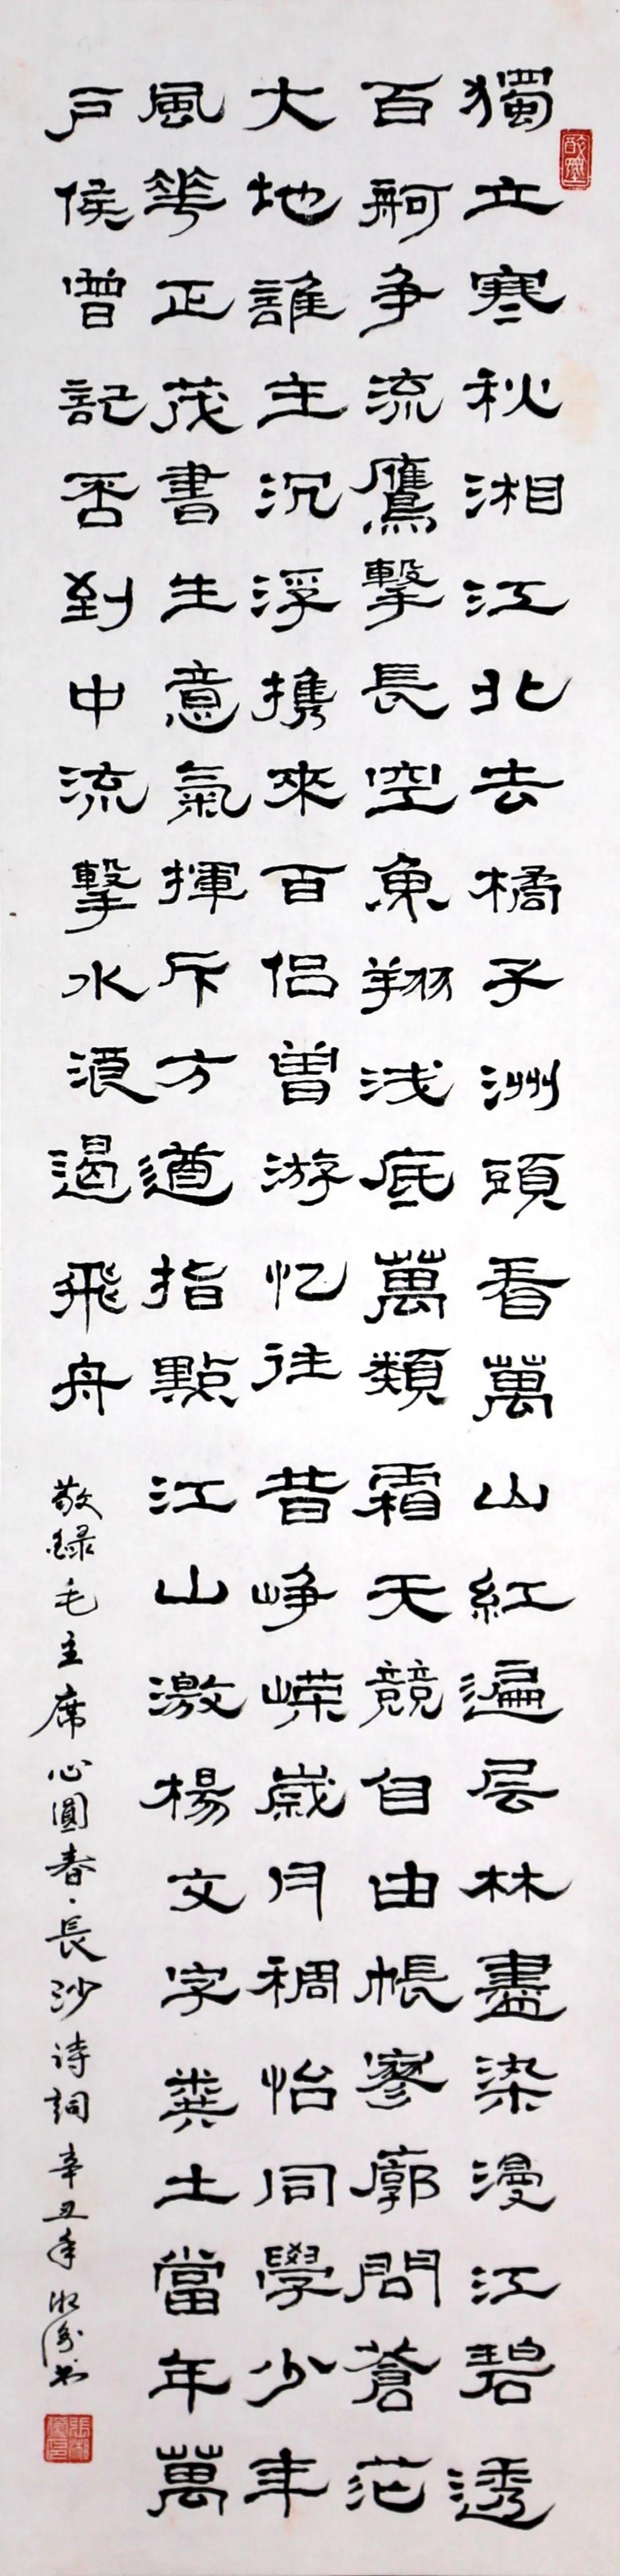 獨立寒秋湘江北去橘子洲頭看萬山紅遍层林盡染漫江碧透
百舸争流鷹擊長空魚翔浅底萬類霜天競自由帳寥廓問蒼茫
大地誰主沉浮携來百侣曾游忆往昔峥嵘歲月稠怡同學少年
風華正茂書生意氣揮斥方遒指點江山激楊文字粪土當年萬
户侯曾記否到中流擊水浪遏飛舟
敬録毛主席心圓春·長沙诗詞辛丑年